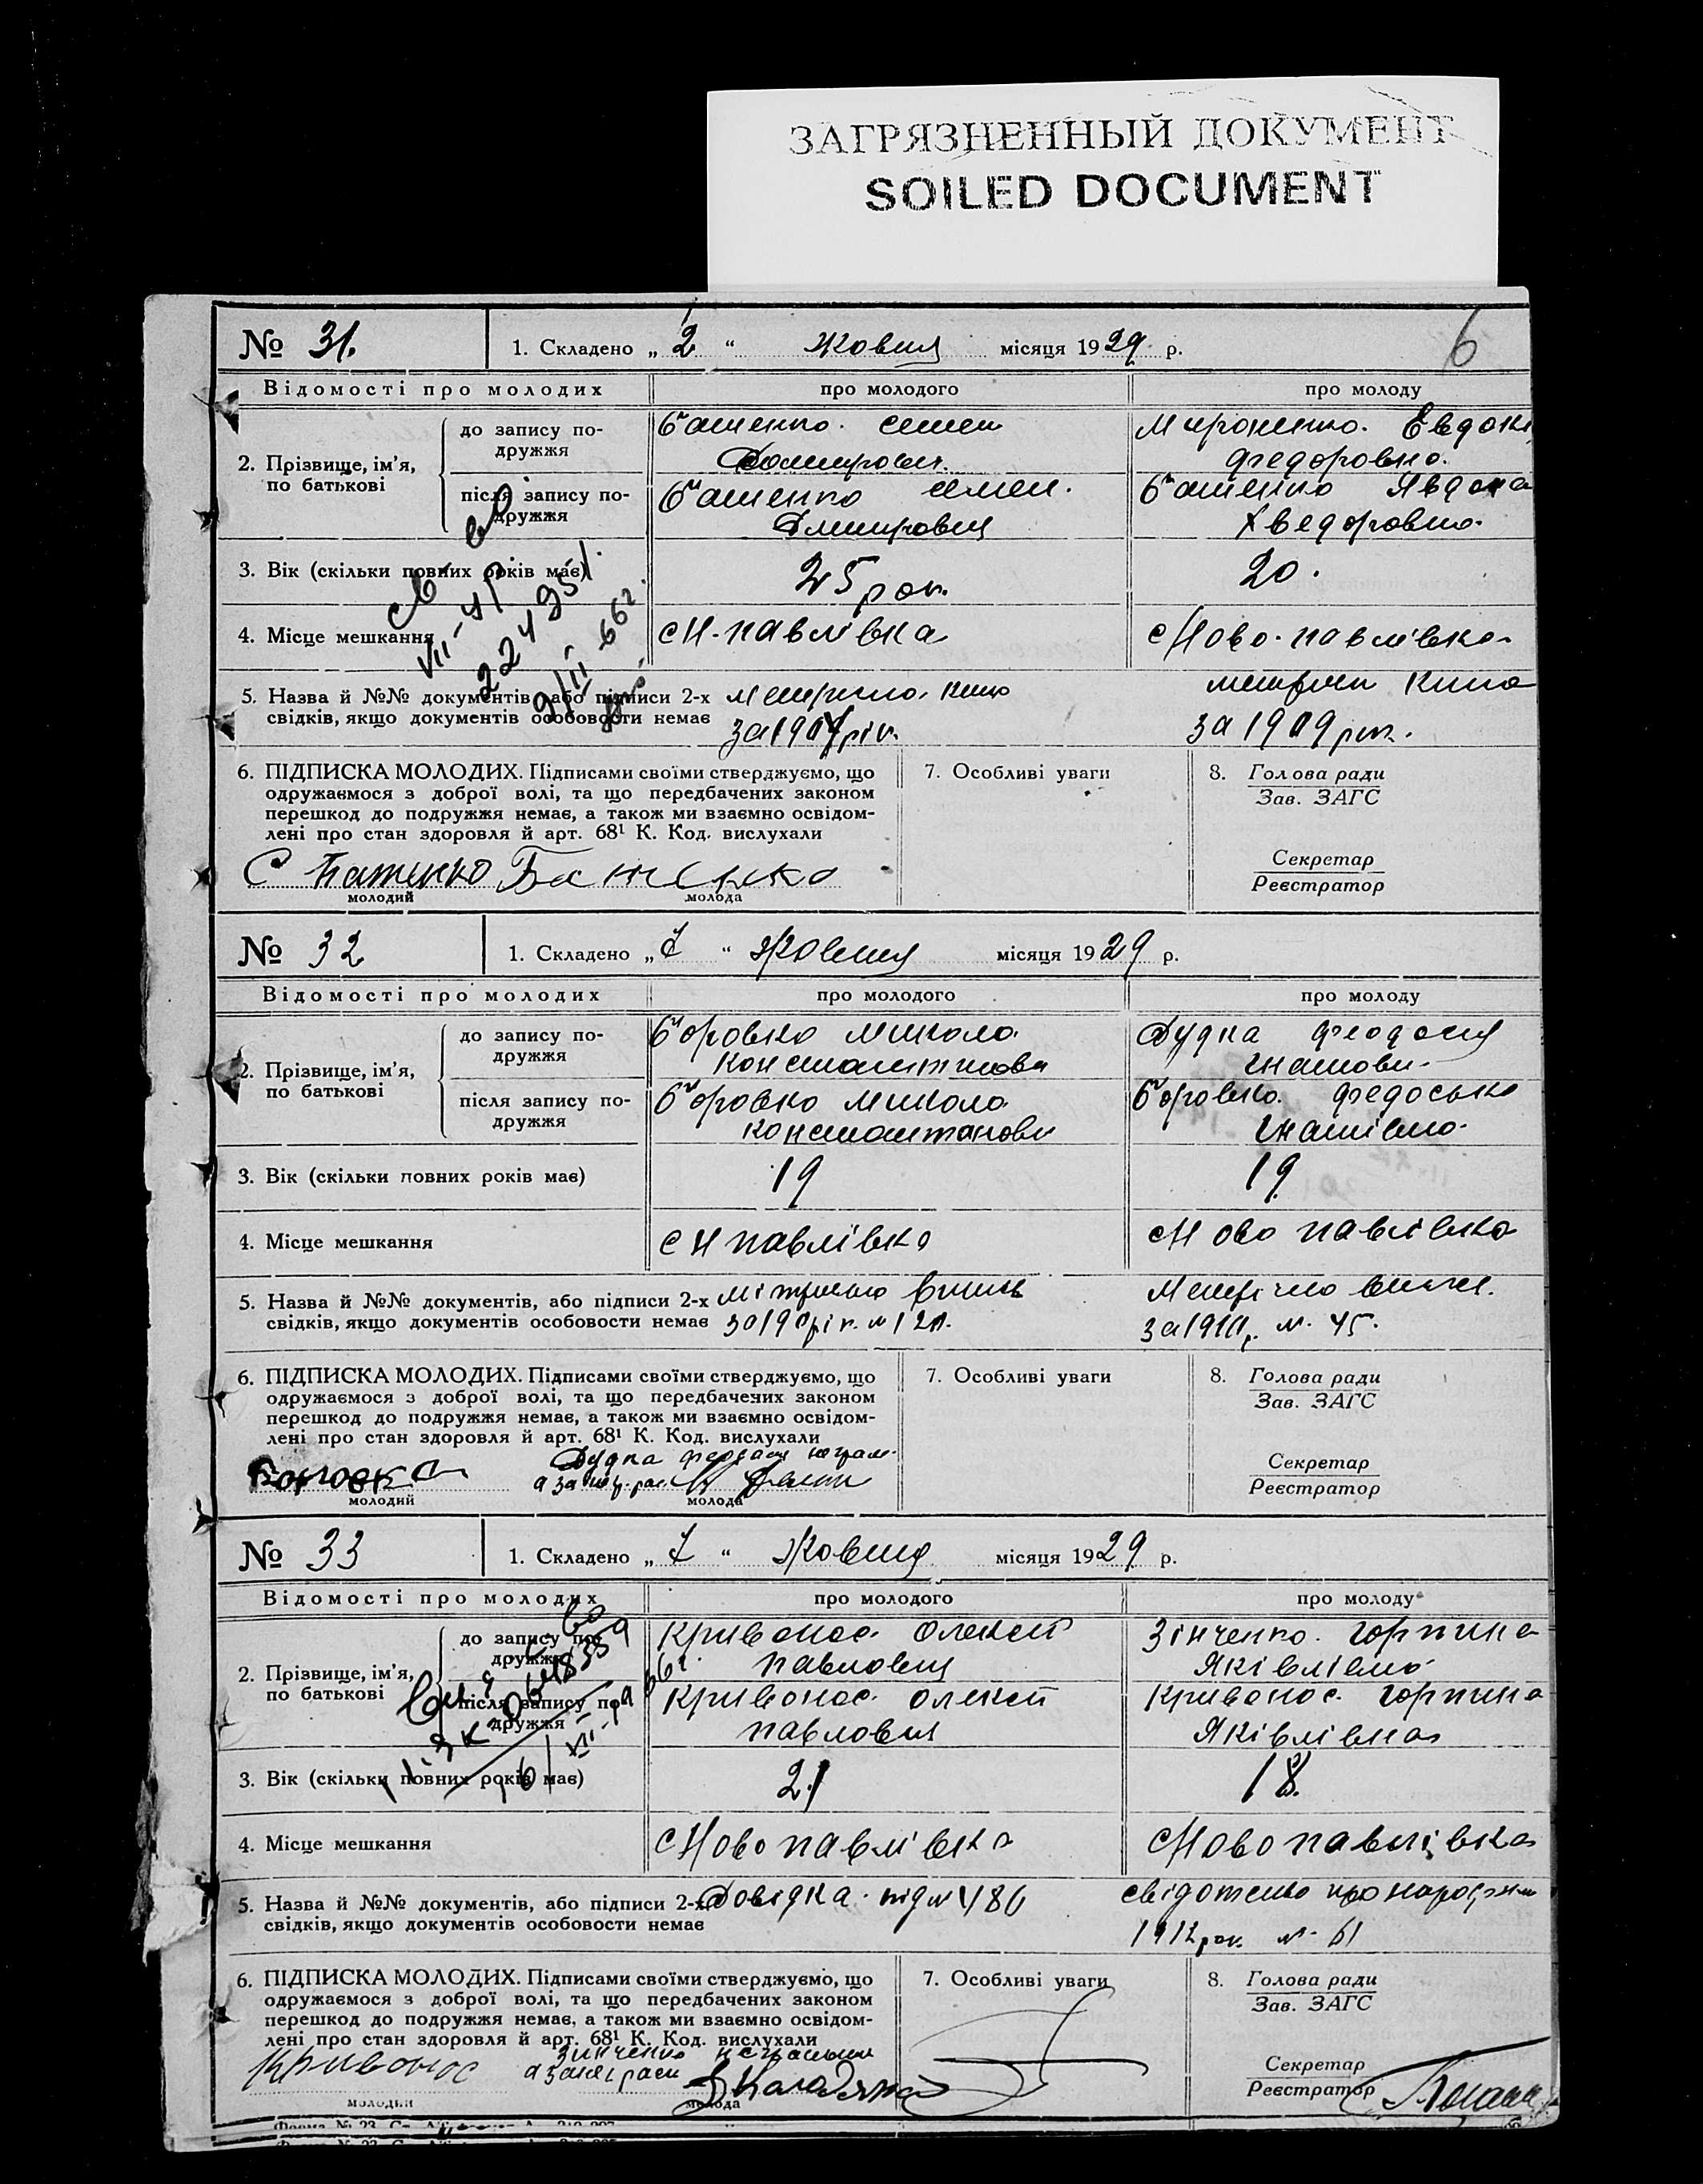 ЗАГРЯЗНЕННЫЙ ДОКУМЕНТ
SOILED DOCUMENT
6
№ 31. 1. Складено „ 2 “ жовтня місяця 1929 р.
Відомості про молодих про молодого про молоду
2. Прізвище, ім'я, по батькові
до запису по-
дружжя
Башенко Семен
Мироненко Евдокі
Федоровна
після запису по-
дружжя
Башенко Семен
Дмитрович
Башенко Явдоха
Хведоровна
3. Вік (скільки повних років має) 25 рок. 20.
4. Місце мешкання с Н-павлівка с Ново-павлівка
5. Назва й №№ документів, або підписи 2-х
свідків, якщо документів особовости немає
за 1909 рік.
6. ПІДПИСКА МОЛОДИХ. Підписами своїми стверджуємо, що
одружаємося з доброї волі, та що передбачених законом
перешкод до подружжя немає, а також ми взаємно освідом-
лені про стан здоров‛я й арт. 68¹ К. Код. вислухали
молодий молода
7. Особливі уваги
8. Голова ради
Зав. ЗАГС
Секретар
Реєстратор
№ 32 1. Складено „ 7 “ Жовтня місяця 1929 р.
Відомості про молодих про молодого про молоду
2. Прізвище, ім'я,
по батькові
до запису по-
дружжя
Боровко Микола
Константинови
Дудка Феодосия
Гнатови
після запису по-
дружжя
Боровко Микола
Константинови
Боровко Федоська
Гнатівна
3. Вік (скільки повних років має) 19 19
4. Місце мешкання с Н павлівка с Ново павлівка
5. Назва й №№ документів, або підписи 2-х
свідків, якщо документів особовости немає
за 1910 р. № 45.
6. ПІДПИСКА МОЛОДИХ. Підписами своїми стверджуємо, що
одружаємося з доброї волі, та що передбачених законом
перешкод до подружжя немає, а також ми взаємно освідом-
лені про стан здоровля й арт. 68¹ К. Код. вислухали
Боровко
молодий молода
7. Особливі уваги
8. Голова ради
Зав. ЗАГС
Секретар
Реєстратор
№ 33 1. Складено „ 7 “ Жовтня місяця 1929 р.
Відомості про молодих про молодого про молоду
2. Прізвище, ім'я,
по батькові
до запису по-
дружжя
Кривонос Олексій
Павлович
Зінченко Горпина
Яківлівна
після запису по-
дружжя
Кривонос Олексій
Павлович
Кривонос Горпина
Яківлівна
3. Вік (скільки повних років має) 21 18
4. Місце мешкання с Ново павлівка с Ново павлівка
5. Назва й №№ документів, або підписи 2-х
свідків, якщо документів особовости немає
Довідка під № 486
1912 рок. № 61
6. ПІДПИСКА МОЛОДИХ. Підписами своїми стверджуємо, що
одружаємося з доброї волі, та що передбачених законом
перешкод до подружжя немає, а також ми взаємно освідом-
лені про стан здоровля й арт. 68¹ К. Код. вислухали
Кривонос
молодий молода
7. Особливі уваги
8. Голова ради
Зав. ЗАГС
Секретар
Реєстратор